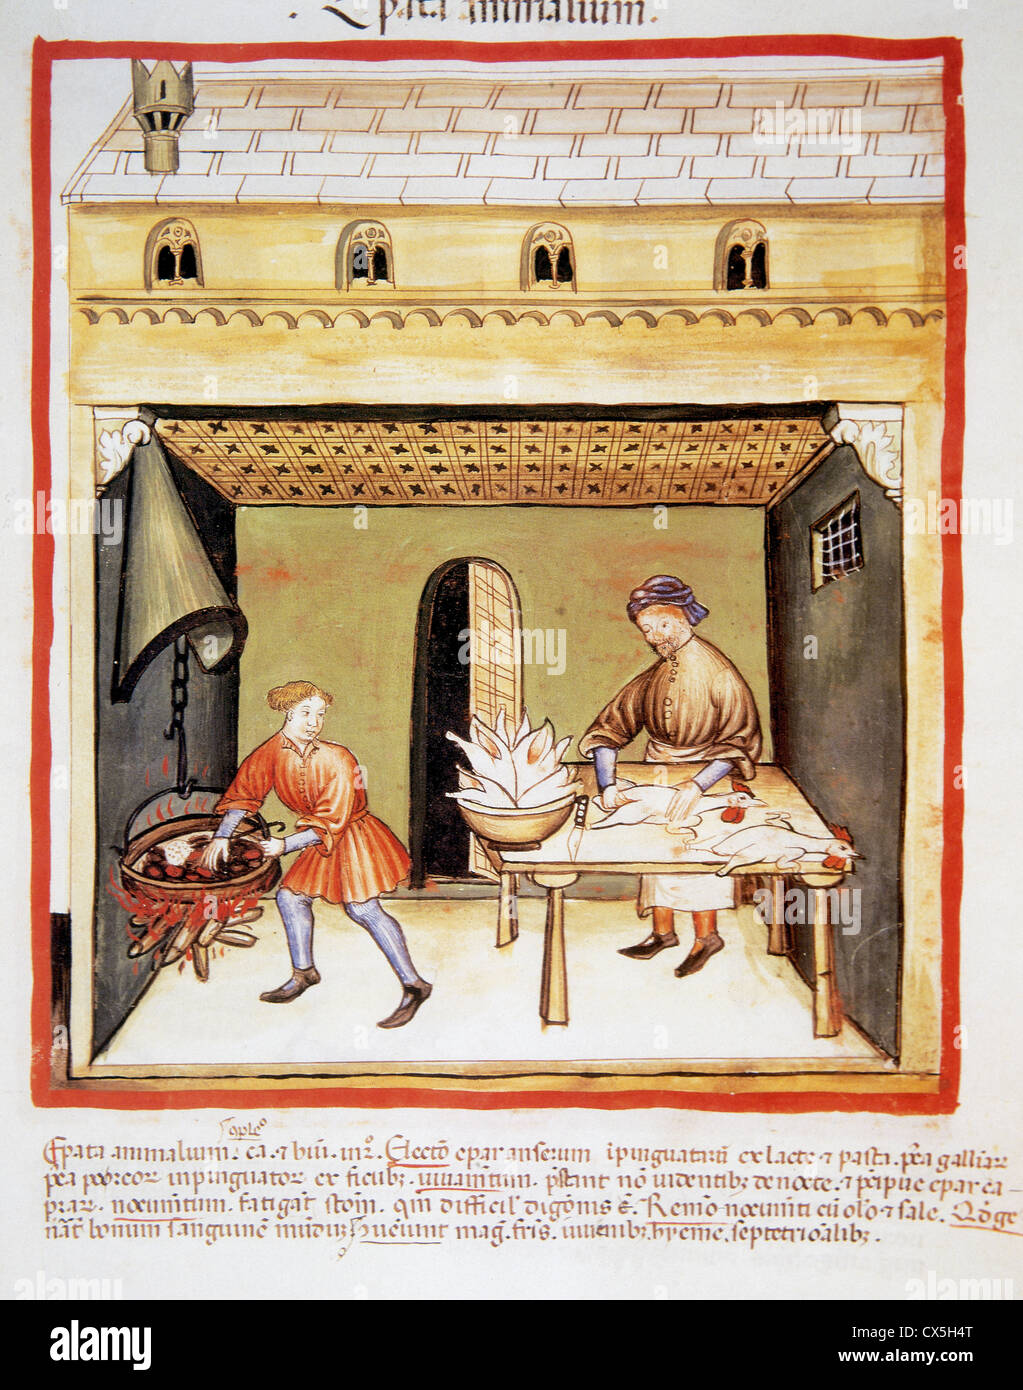 Epata animalium.
ople°
Epata animalium. ca. ⁊ hui. in 2°. Electō epar anserum īpinguatarū ex lacte ⁊ pasta. p̄ea galliar̄
p̄ea porcor inpinguator ex ficubꝫ. iuuamtum. p̄stant nō uidentibꝫ de nocte. ⁊ p̄cipue epar ca
prar. nocumtum. fatigāt stom̄. qm̄ difficil digōnis ē. Remō nocumti cū olo ⁊ sale. Qd̄ ge
nāt bonum sanguinē mūdū. 9ueiunt mag. fris. iuuenibꝫ. hyeme. septētrioālibꝫ.
alamy
Image ID: CX5H4T
www.alamy.com